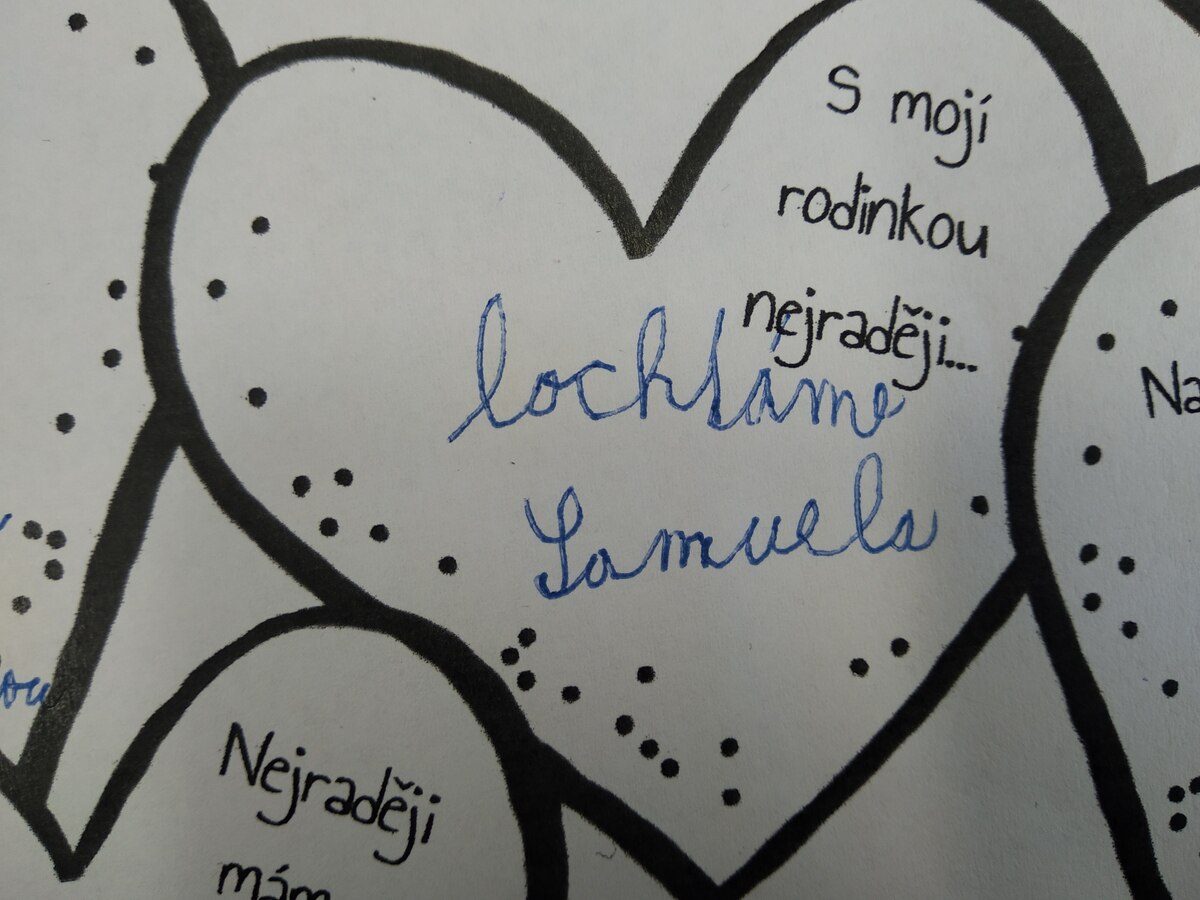 S mojí
rodinkou
nejraději...
lochtáme
Samuela
Na
Nejraději
mám
ou